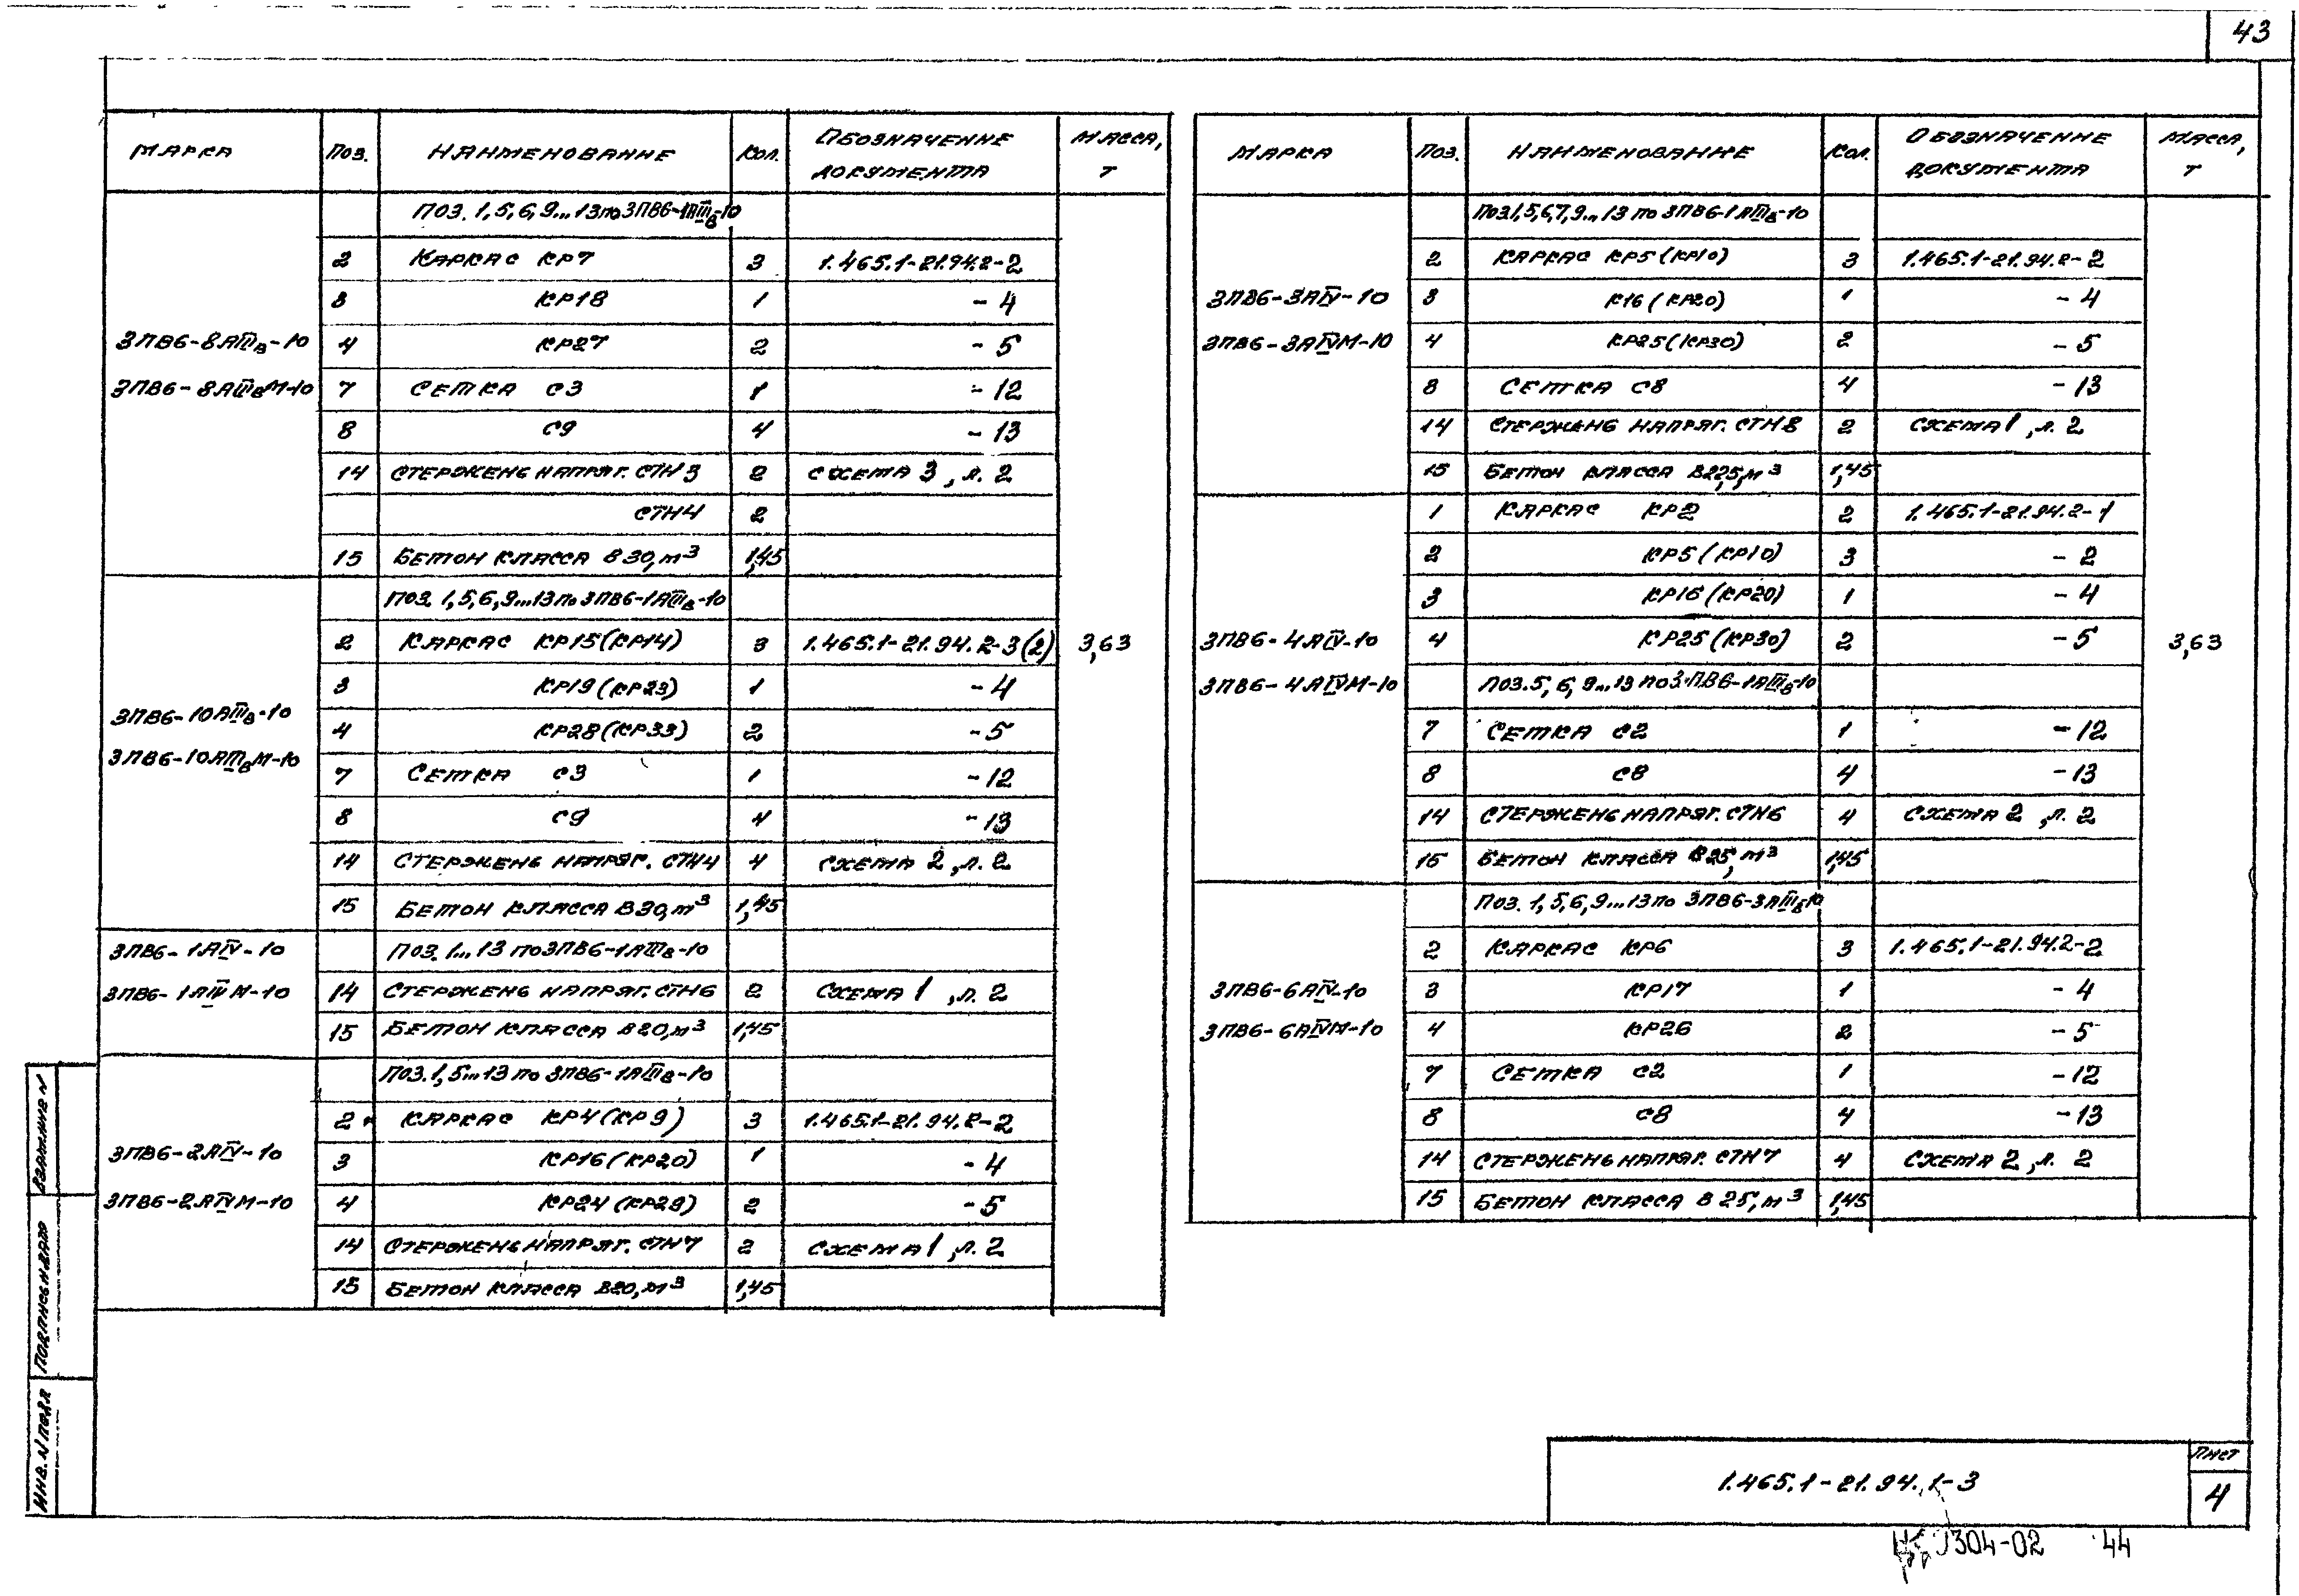 43
Марка Поз. Наименование Кол. Обозначение документа Масса, т
Поз. 1, 5, 6, 9...13 по 3ПВ6-1АIIIв-10
3ПВ6-8АIIIв-10
3ПВ6-8АIIIвМ-10
2 Каркас КР7 3 1.465.1-21.94.2-2
3 КР18 1 -4
4 КР27 2 -5
7 Сетка С3 1 -12
8 С9 4 -13
14 Стержень напряг. СТН3 2 Схема 3, л. 2
СТН4 2
15 Бетон класса В30, м³ 1,45
Поз. 1, 5, 6, 9...13 по 3ПВ6-1АIIIв-10
3ПВ6-10АIIIв-10
3ПВ6-10АIIIвМ-10
2 Каркас КР15 (КР14) 3 1.465.1-21.94.2-3(2) 3,63
3 КР19 (КР23) 1 -4
4 КР28 (КР33) 2 -5
7 Сетка С3 1 -12
8 С9 4 -13
14 Стержень напряг. СТН4 4 Схема 2, л. 2
15 Бетон класса В30, м³ 1,45
3ПВ6-1АIV-10 Поз. 1...13 по 3ПВ6-1АIIIв-10
3ПВ6-1АIVМ-10 14 Стержень напряг. СТН6 2 Схема 1, л. 2
15 Бетон класса В20, м³ 1,45
Поз. 1, 5...13 по 3ПВ6-1АIIIв-10
3ПВ6-2АIV-10
3ПВ6-2АIVМ-10
2 Каркас КР4 (КР9) 3 1.465.1-21.94.2-2
3 КР16 (КР20) 1 -4
4 КР24 (КР29) 2 -5
14 Стержень напряг. СТН7 2 Схема 1, л. 2
15 Бетон класса В20, м³ 1,45
Марка Поз. Наименование Кол. Обозначение документа Масса, т
Поз. 1, 5, 6, 7, 9...13 по 3ПВ6-1АIIIв-10
3ПВ6-3АIV-10
3ПВ6-3АIVМ-10
2 Каркас КР5 (КР10) 3 1.465.1-21.94.2-2
3 К16 (КР20) 1 -4
4 КР25 (КР30) 2 -5
8 Сетка С8 4 -13
14 Стержень напряг. СТН8 2 Схема 1, л. 2
15 Бетон класса В22,5, м³ 1,45
1 Каркас КР2 2 1.465.1-21.94.2-1
2 КР5 (КР10) 3 -2
3 КР16 (КР20) 1 -4
3ПВ6-4АIV-10 4 КР25 (КР30) 2 -5 3,63
3ПВ6-4АIVМ-10 Поз. 5, 6, 9...13 по 3ПВ6-1АIIIв-10
7 Сетка С2 1 -12
8 С8 4 -13
14 Стержень напряг. СТН6 4 Схема 2, л. 2
15 Бетон класса В25, м³ 1,45
Поз. 1, 5, 6, 9...13 по 3ПВ6-3АIIIв-10
3ПВ6-6АIV-10
3ПВ6-6АIVМ-10
2 Каркас КР6 3 1.465.1-21.94.2-2
3 КР17 1 -4
4 КР26 2 -5
7 Сетка С2 1 -12
8 С8 4 -13
14 Стержень напряг. СТН7 4 Схема 2, л. 2
15 Бетон класса В25, м³ 1,45
Взам.инв N
Подпись и дата
Инв. N подл
1.465.1-21.94.1-3
Лист
4
304-02 44